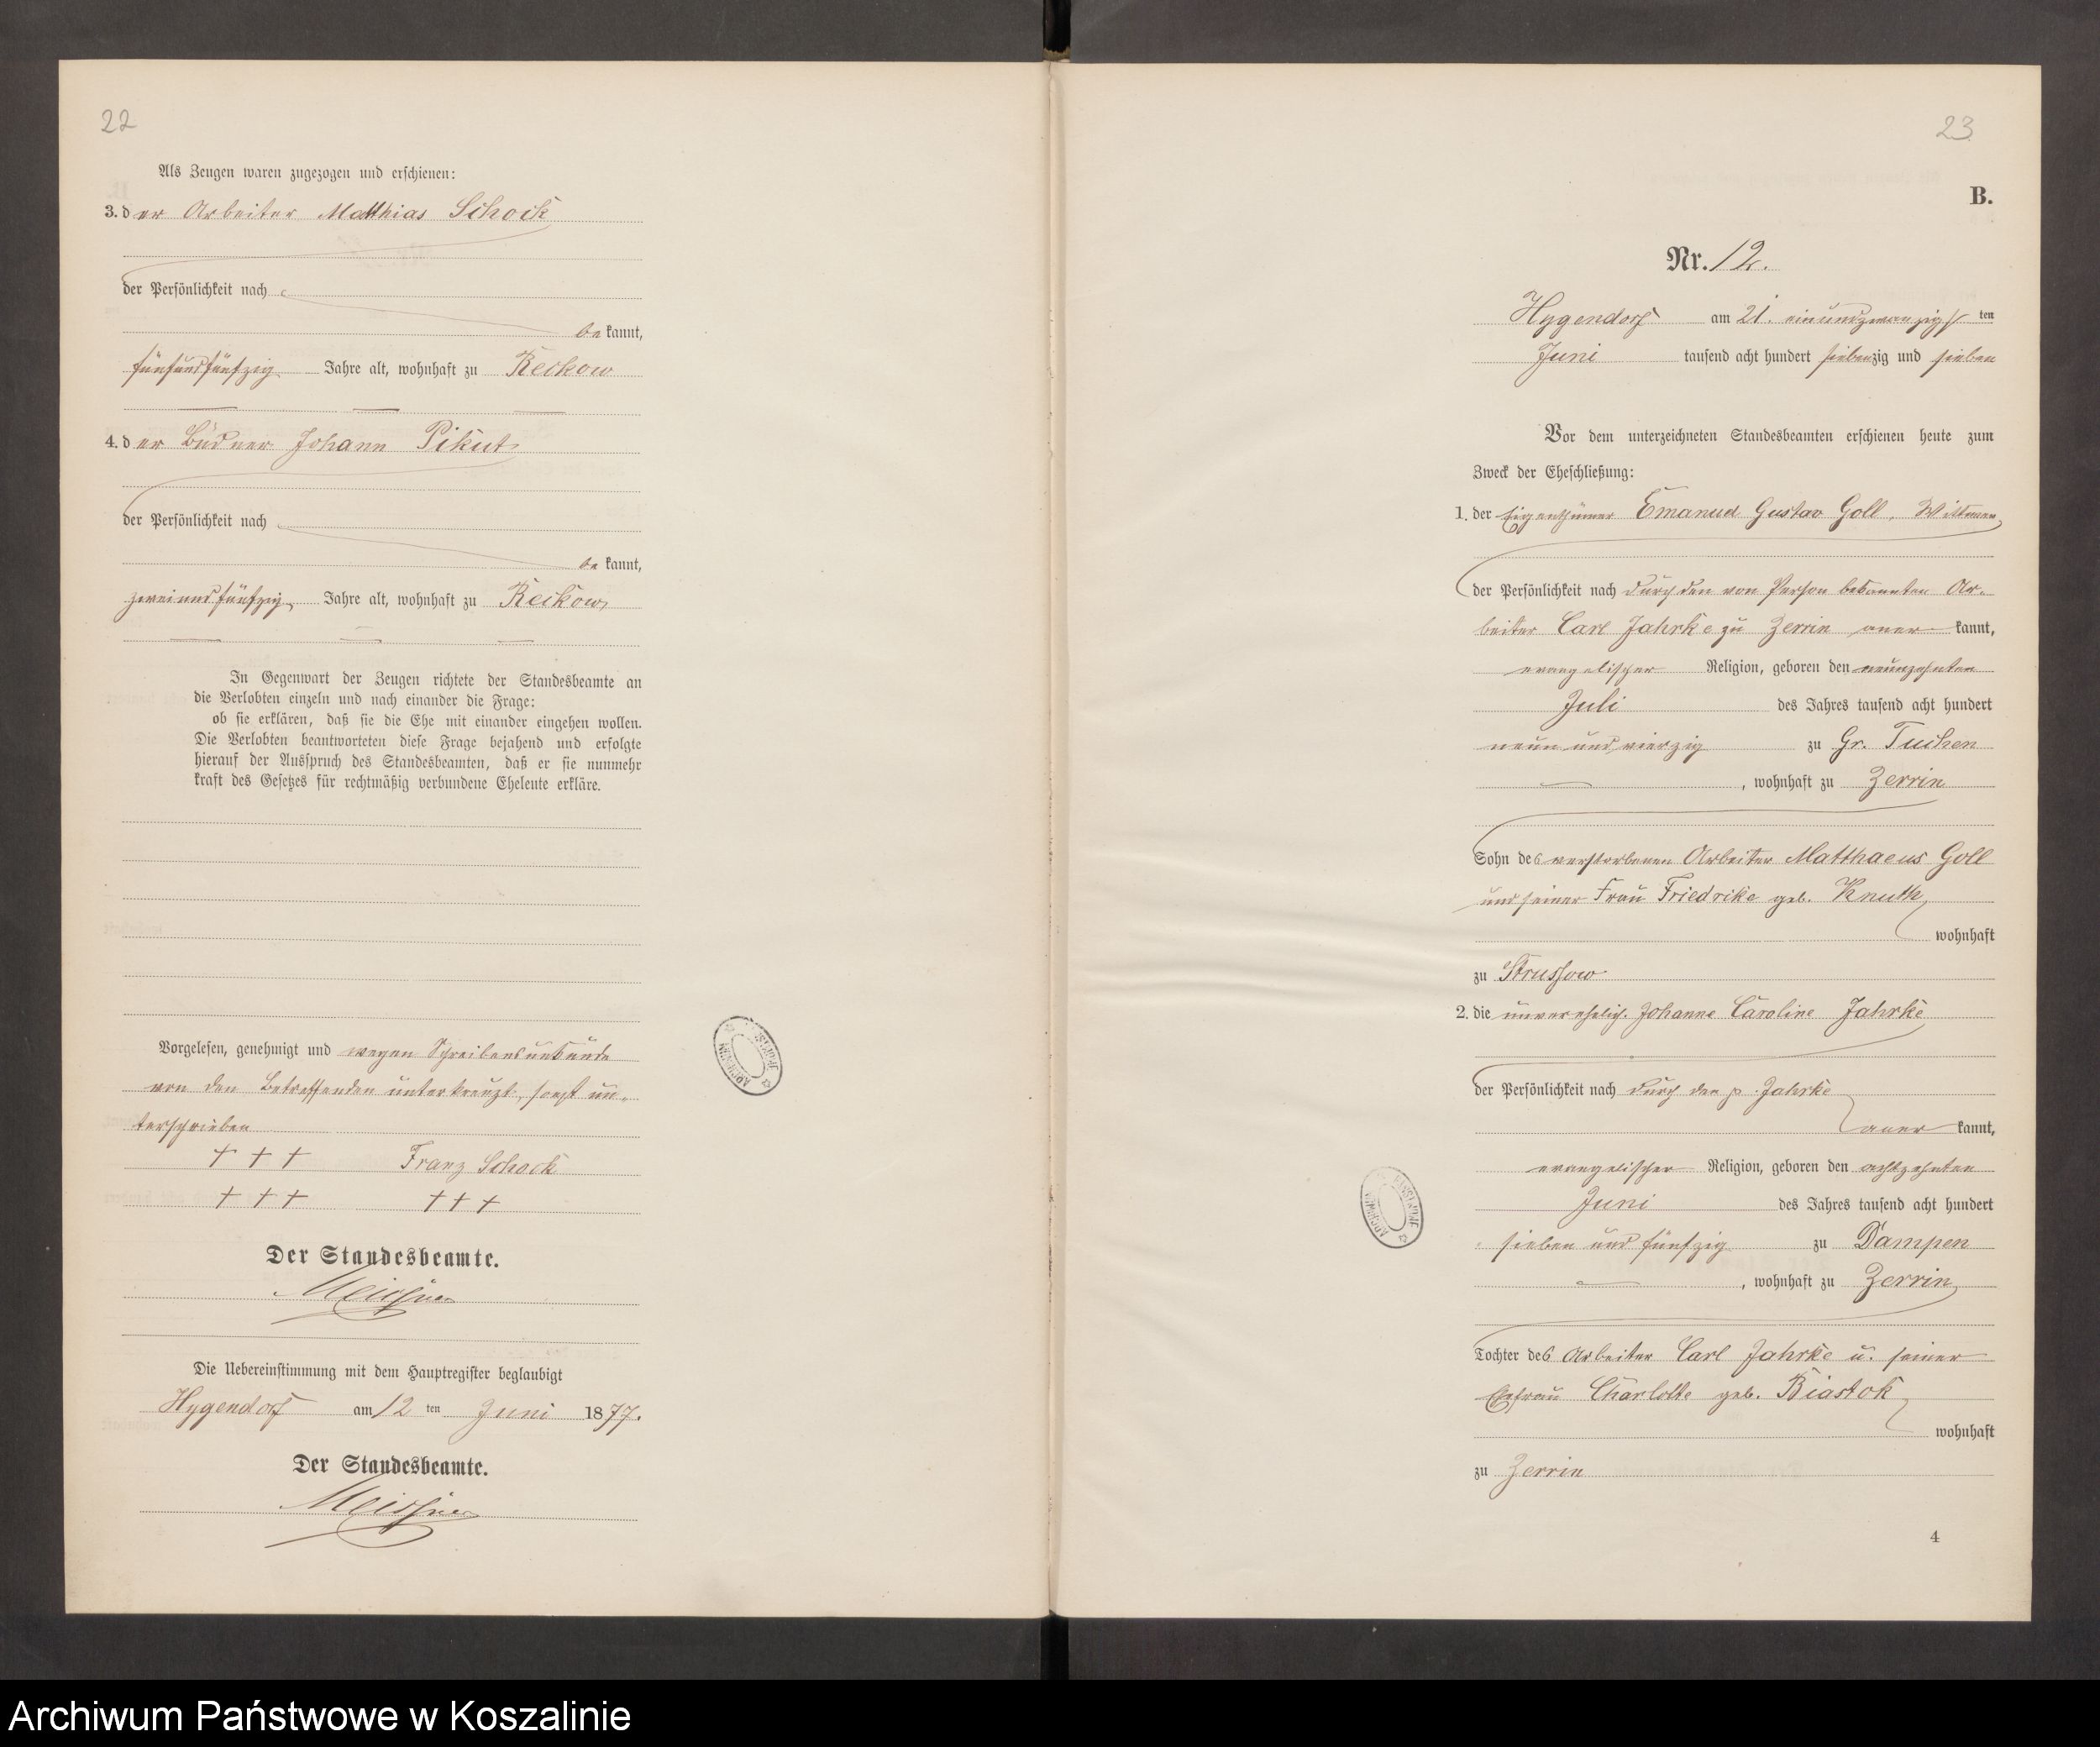 22
Als Zeugen waren zugezogen und erschienen:
3. der Arbeiter Matthias Schock
der Persönlichkeit nach
bekannt,
fünfundfünfzig Jahre alt, wohnhaft zu Reckow
4. der Büdner Johann Pikut
der Persönlichkeit nach
bekannt,
zweiundfünfzig Jahre alt, wohnhaft zu Reckow
In Gegenwart der Zeugen richtete der Standesbeamte an
die Verlobten einzeln und nach einander die Frage:
ob sie erklären, daß sie die Ehe mit einander eingehen wollen.
Die Verlobten beantworteten diese Frage bejahend und erfolgte
hierauf der Ausspruch des Standesbeamten, daß er sie nunmehr
kraft des Gesetzes für rechtmäßig verbundene Eheleute erkläre.
Vorgelesen, genehmigt und wegen Schreibensunkunde
von den Betreffenden unterkreuzt, sonst un-
terschrieben
+++ Franz Schock
+++ +++
Der Standesbeamte.
Meissner
Die Uebereinstimmung mit dem Hauptregister beglaubigt
Hygendorf am 12 ten Juni 1877.
Der Standesbeamte.
Meissner
23
B.
Nr. 12.
Hygendorf am 21. einundzwanzigsten
Juni tausend acht hundert siebenzig und sieben
Vor dem unterzeichneten Standesbeamten erschienen heute zum
Zweck der Eheschließung:
1. der Eigenthümer Emanuel Gustav Goll, Wittwer
der Persönlichkeit nach durch den von Person bekannten Ar-
beiter Carl Jahrke zu Zerrin anerkannt,
evangelischer Religion, geboren den neunzehnten
Juli des Jahres tausend acht hundert
neun und vierzig zu Gr. Tuchen
, wohnhaft zu Zerrin
Sohn des verstorbenen Arbeiter Matthaeus Goll
und seiner Frau Friedrike geb. Knuth
wohnhaft
zu Strussow
2. die unverehelich. Johanne Caroline Jahrke
der Persönlichkeit nach durch den p. Jahrke
anerkannt,
evangelischer Religion, geboren den achtzehnten
Juni des Jahres tausend acht hundert
sieben und fünfzig zu Dampen
, wohnhaft zu Zerrin
Tochter des Arbeiter Carl Jahrke u. seiner
Ehefrau Charlotte geb. Biastok
wohnhaft
zu Zerrin
4
Archiwum Państwowe w Koszalinie